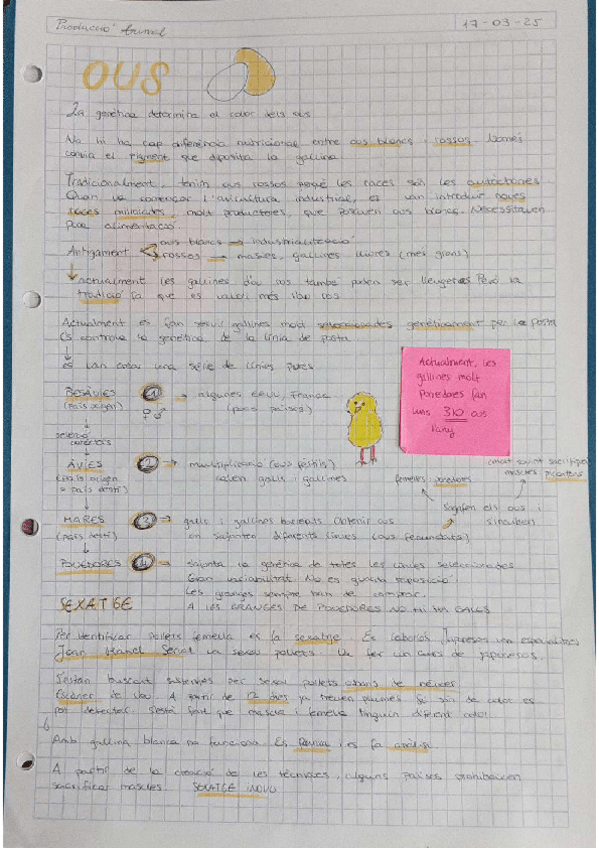 Producció Animal
17-03-25
OUS
La genètica determina el color dels ous
No hi ha cap diferència nutricional entre ous blancs i rossos. Només
canvia el pigment que diposita la gallina.
Tradicionalment, tenim ous rossos perquè les races són les autòctones
Quan va començar l'avicultura industrial, es van introduir noves
races millorades, molt productores, que posaven ous blancs. Necessitaven
poca alimentació.
Antigament
ous blancs → industrialització
rossos → masies, gallines lliures (més grans)
Actualment les gallines d'ou ros també poden ser lleugeres. Però la
tradició fa que es valori més l'ou ros
Actualment es fan servir gallines molt seleccionades genèticament per la posta
Es controla la genètica de la línia de posta
es van crear una sèrie de línies pures
Actualment, les
gallines molt
ponedores fan
uns 310 ous
l'any
BESÀVIES
(país origen)
1 → algunes EEUU, França
♀ ♂ (pocs països)
selecció
ÀVIES
(país origen
o país destí)
2 → multiplicació (ous fèrtils)
calen galls i gallines
femelles ponedores
mascles
S'agafen els ous i
s'incuben
MARES
(país destí)
3 → galls i gallines Obtenir ous
on s'ajunten diferents línies (ous fecundats)
PONEDORES
4 → s'ajunta la genètica de totes les línies seleccionades
Gran variabilitat. No es guarda reposició
Les granges sempre han de comprar.
A LES GRANGES DE PONEDORES NO HI HA GALLS
SEXATGE
Per identificar pollets femella es fa sexatge. És laboriós. Japonesos van
Joan Manel Serrat va sexar pollets. Va fer un curs de japonesos.
S'estan buscant sistemes per sexar pollets abans de néixer
Escàner de l'ou. A partir de 12 dies ja tenen plomes. Si són de color es
pot detectar. S'està fent que mascle i femella tinguin diferent color
Amb gallina blanca no funciona. Es i es fa anàlisi.
A partir de la creació de les tècniques, alguns països prohibeixen
sacrificar mascles. SEXATGE INOVO